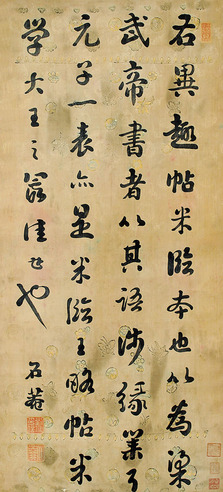 右異趣帖米臨本也以為梁
武帝書者以其語涉緣業了
元子一表亦是米臨王略帖米
学大王之最佳者也
石菴